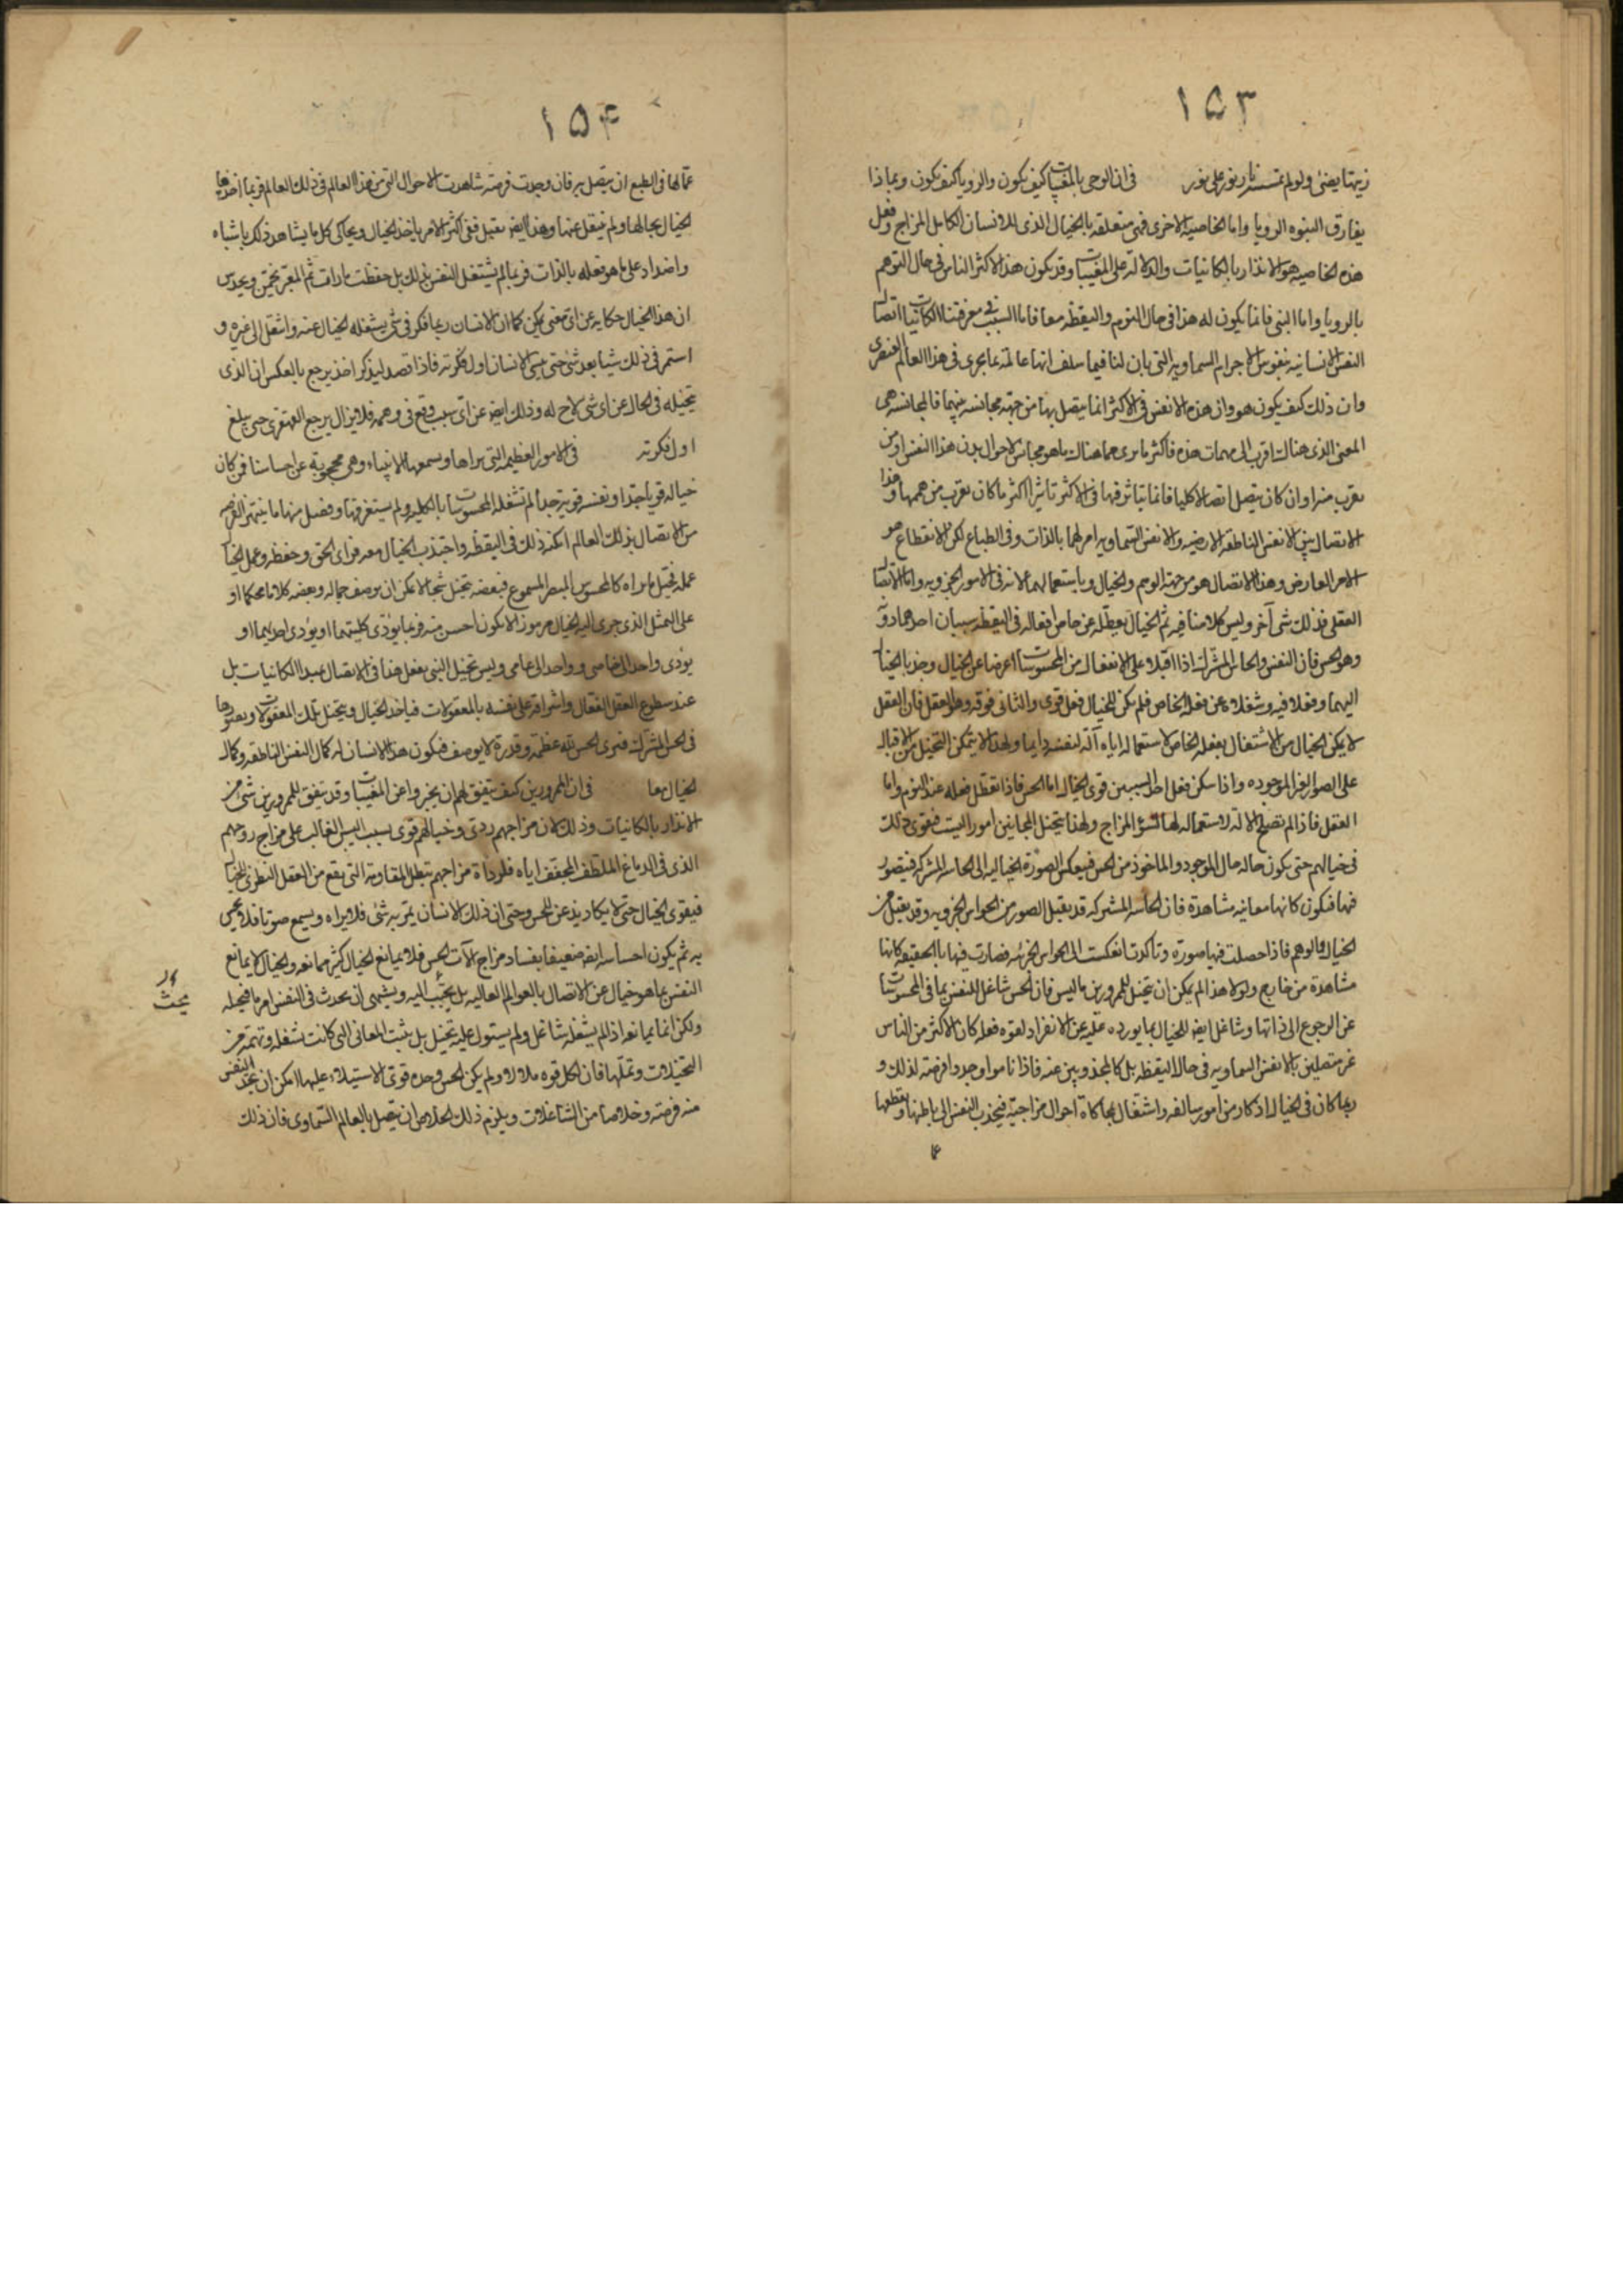 ١٥٣
زيتها يضئ ولو لم تمسسه نار نور على نور في ان الوحى بالمغيبات كيف يكون والرويا كيف يكون وبماذا
يفارق النبوه الرويا واما الخاصية الاخرى فهى متعلقه بالخيال الذى للانسان الكامل المزاج وفعل
هذه الخاصيه هو الانذار بالكائنيات والدلالة على المغيبات وقد يكون هذا لاكثر الناس فى حال النوم
بالرويا واما النبى فانما يكون له هذا فى حال النوم واليقظه معا فاما السبب فى معرفتنا الكائنيات اتصال
النفس الانسانيه بنفوس الاجرام السماويه التى بان لنا فيما سلف انها عالمة بما يجرى فى هذا العالم العنصرى
وان ذلك كيف يكون هو وان هذه الانفس فى الاكثر انما يتصل بها من جهة مجانسه بينهما فالمجانسه هى
المعنى الذى هناك اقرب الى مهمات هذه فاكثر ما يرى مما هناك ما هو مجانس لاحوال بدن هذا النفس او من
يقرب منه او ان كان يتصل اتصالا كليا فانما يتاثر فيها فى الاكثر تاثيرا اكثر ما كان يقرب من هممها وهذا
الاتصال بين الانفس الناطقه الارضيه والانفس السماويه امر لهما بالذات وفى الطباع لكن الانقطاع هو
الامر العارض وهذا الاتصال هو من جهة الوهم والخيال وباستعمالهما لانه فى الامور الجزويه واما الاتصال
العقلى فذلك شى آخر وليس كلامنا فيه ثم الخيال يعطله عن خاص افعاله فى اليقظه سببان احدهما دونه
وهو الحس فان النفس والحاس المشترك اذا اقبلا على الانفعال من المحسوسات اعرضا عن الخيال وجذبا الخيال
اليهما وفعلا فيه وشغلاه عن فعله الخاص فلم يكن للخيال فعل قوى والثانى فوقه وهو العقل فان العقل
لا يمكن الخيال من الاشتغال بفعله الخاص لاستعماله اياه آلة لنفسه دايما ولهذا لا يتمكن التخيل من الاقبال
على الصور الغير الموجوده واذا سكن فعل احد السببين قوى الخيال اما الحس فاذا تعطل فعله عند النوم واما
العقل فاذا لم تصلح الالة لاستعماله لها لسوء المزاج ولهذا يتخيل المجانين امورا ليست فيقوى ذلك
فى خيالهم حتى يكون حاله حال الموجود والماخوذ من الحس فينعكس الصورة الخياليه الى الحاسه المشتركه فيتصور
فيها فيكون كانها معاينه مشاهدة فان الحاسه المشتركه قد يقبل الصور من الحواس الجزويه وقد يقبل من
الخيال والوهم فاذا حصلت فيها صورة وتاكدت انعكست الى الحواس الجزئيه فصارت فيها بالحقيقه كانها
مشاهدة من خارج ولولا هذا لم يكن ان يتخيل للممرورين ما ليس فان الحس شاغل للنفس بما فى المحسوسات
عن الرجوع الى ذاتها وشاغل ايضه للخيال بما يورده عليه عن الانفراد لقوه فعله كان الاكثر من الناس
غير متصلين بالانفس السماويه فى حال اليقظه بل كالمحجوبين عنه فاذا ناموا وجدوا فرصة لذلك و
ربما كان فى الخيال اذكار من امور سالفه واشتغال بمحاكاة احوال مزاجية فيجذب النفس الى باطنها ويعطلها
عما
١٥۴
عما لها فى الطبع ان يتصل به فان وجدت فرصة شاهدت الاحوال التى من هذا العالم فى ذلك العالم فربما اخذها
الخيال بحالها ولم ينتقل عنها وهذا ايضه يقل ففى اكثر الامر ياخذ الخيال ويحاكى كل ما يشاهد ذلك باشباه
واضداد على ما هو فعله بالذات فربما لم يشتغل النفس بذلك بل حفظت ما رات ثم المعبر يخمن ويحدس
ان هذا الخيال حكايه عن اى معنى يمكن كما ان الانسان ربما فكر فى شى يشغله الخيال عنه وانتقل الى غيره و
استمر فى ذلك شيا بعد شئ حتى ينسى الانسان اول فكرته فاذا قصد ليذكر اخذ يرجع بالعكس ان الذى
يتخيله فى الحال عن اى شى لاح له وذلك ايضه عن اى سبب وقع فى وهمه فلا يزال يرجع القهقرى حتى يبلغ
اول فكرته فى الامور العظيمه التى يراها ويسمعها الانبياء وهى محجوبة عن احساسنا فمن كان
خياله قويا جدا ونفسه قوية جدا لم تشغله المحسوسات بالكليه ولم يستغرقها وفضل منها ما ينتهز الفرصه
من الاتصال بذلك العالم امكنه ذلك فى اليقظه واجتذب الخيال معه فراى الحق وحفظه وعمل الخيال
عمله فخيل ما يراه كالمحسوس المبصر المسموع فبعضه يتخيل شبحا لا يمكن ان يوصف جماله وبعضه كلاما محكما او
على المثل الذى جرى اليه الخيال مرموزا لا يكون احسن منه فربما يؤدى كليتهما او يؤدى احديهما او
يؤدى واحدا الى خاصى وواحدا الى عامى وليس تخيل النبى يفعل هذا فى الاتصال بمبدا الكائنيات بل
عند سطوع العقل الفعال واشراقه على نفسه بالمعقولات فياخذ الخيال ويتخيل تلك المعقولات ويصورها
فى الحس المشترك فيرى الحس لله عظمة وقدرة لا يوصف فيكون هذا الانسان له كمال النفس الناطقه وكمال
الخيال معا فى ان الممرورين كيف يتفق لهم ان يخبروا عن المغيبات وقد يتفق للممرورين شئ من
الانذار بالكائنيات وذلك لان مزاجهم ردى وخيالهم قوى بسبب اليبس الغالب على مزاج روحهم
الذى فى الدماغ الملطف المجفف اياه فلرداة مزاجهم تبطل المقاومة التى يقع من العقل النظرى للخيال
فيقوى الخيال حتى لا يكاد يذعن للحس وحتى ان ذلك الانسان يمر به شئ فلا يراه ويسمع صوتا فلا يحس
به ثم يكون احساسه ايضه ضعيفا بفساد مزاج آلات الحس فلا يمانع الخيال كثير ممانعه والخيال لا يمانع
النفس بما هو خيال عن الاتصال بالعوالم العاليه بل ينجذب اليه ويشتهى ان يحدث فى النفس امر ما فيخيله
ولكن انما يمانعه اذا لم يشغله شاغل ولم يستول عليه تخيل بل يثبت المعانى التى كانت تشغله
التخيلات وتملها فان لكل قوه ملالا ولم يكن الحس وحده قوى الاستيلاء عليها امكن ان يجد النفس
منه فرصة وخلاصا من الشاغلات ويلزم ذلك الخلاص ان يتصل بالعالم السماوى فان ذلك